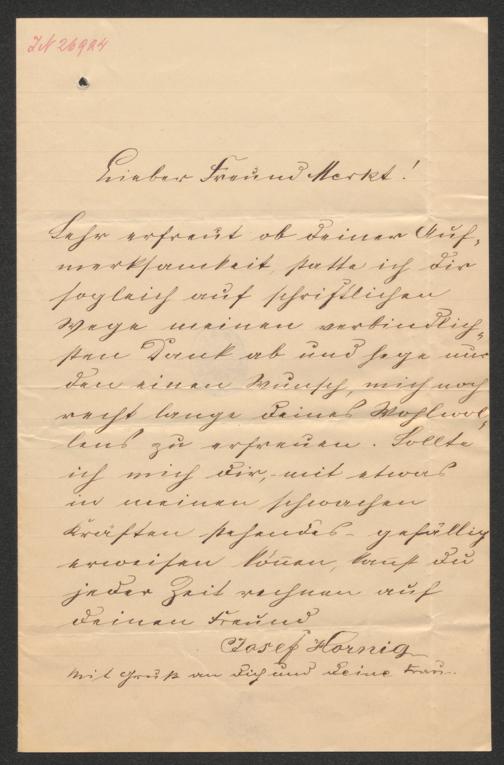 IN 26924
Lieber Freund Merkt!
Sehr erfreut ob deiner Auf-
merksamkeit, statte ich dir
sogleich auf schriftlichen
Wege meinen verbindlich-
sten Dank ab und hege nur
den einen Wunsch, mich noch
recht lange deines Wohlwol-
lens zu erfreuen. Sollte
ich mich dir, - mit etwas
in meinen schwachen
Kräften stehendes - gefällig
erweisen können, kannst du
jeder Zeit rechnen auf
deinen Freund
Josef Hornig
Mit Gruß an dich und deine Frau.